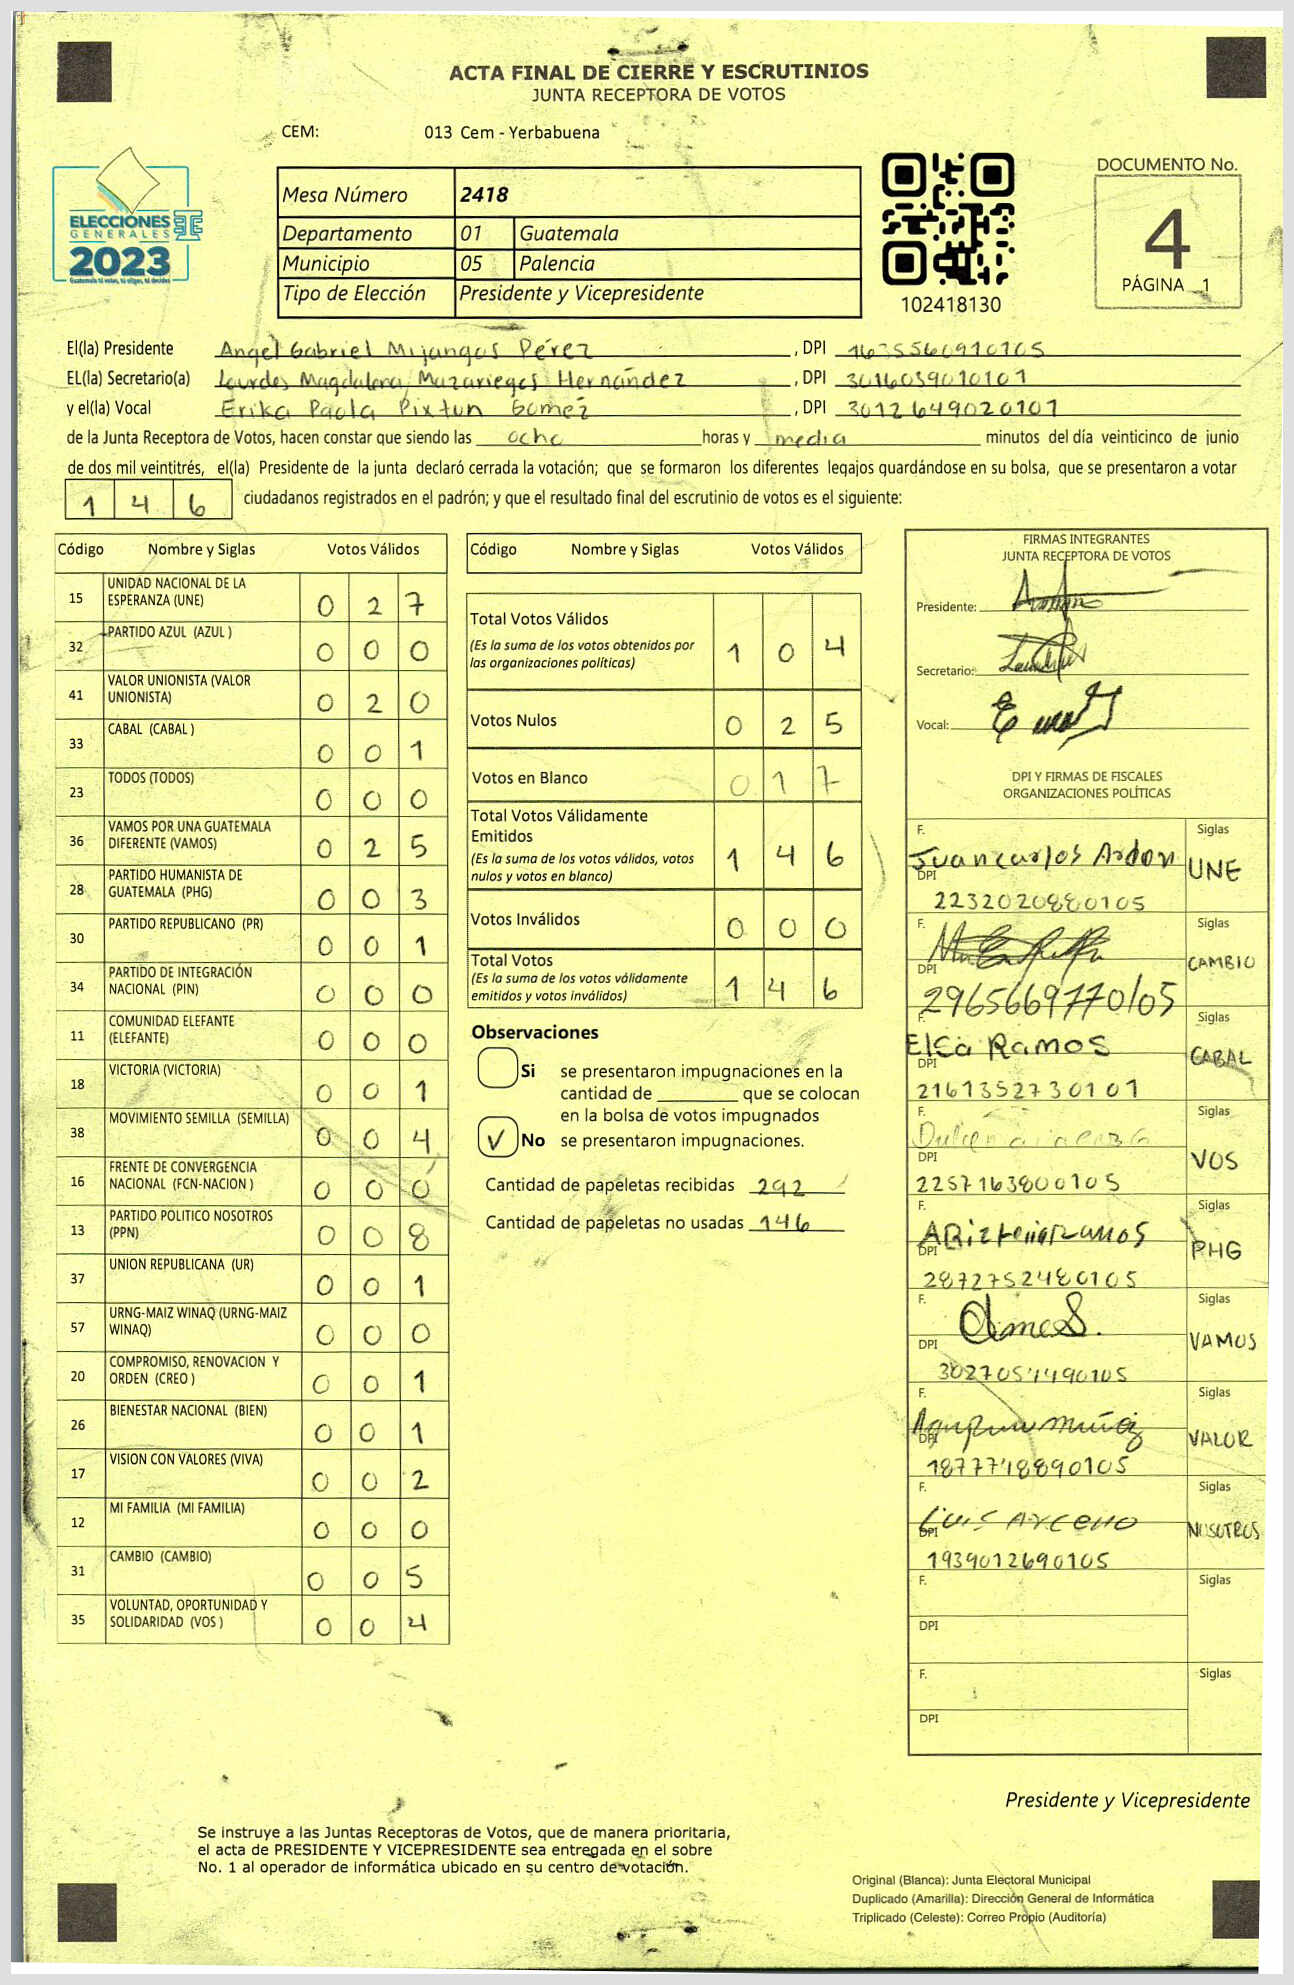 ACTA FINAL DE CIERRE Y ESCRUTINIOS
JUNTA RECEPTORA DE VOTOS
CEM: 013 Cem - Yerbabuena
ELECCIONES
GENERALES
2023
Guatemala tú votas, tú eliges, tú decides
Mesa Número 2418
Departamento 01 Guatemala
Municipio 05 Palencia
Tipo de Elección Presidente y Vicepresidente
102418130
DOCUMENTO No.
4
PÁGINA 1
El(la) Presidente Angel Gabriel Mijangos Pérez , DPI 1635560910105
EL(la) Secretario(a) Lourdes Magdalena Mazariegos Hernández , DPI 3016039010101
y el(la) Vocal Erika Paola Pixtun Gomez , DPI 3012649020101
de la Junta Receptora de Votos, hacen constar que siendo las ocho horas y media minutos del día veinticinco de junio
de dos mil veintitrés, el(la) Presidente de la junta declaró cerrada la votación; que se formaron los diferentes legajos guardándose en su bolsa, que se presentaron a votar
1 4 6 ciudadanos registrados en el padrón; y que el resultado final del escrutinio de votos es el siguiente:
Código Nombre y Siglas Votos Válidos
15 UNIDAD NACIONAL DE LA ESPERANZA (UNE) 0 2 7
32 PARTIDO AZUL (AZUL ) 0 0 0
41 VALOR UNIONISTA (VALOR UNIONISTA) 0 2 0
33 CABAL (CABAL ) 0 0 1
23 TODOS (TODOS) 0 0 0
36 VAMOS POR UNA GUATEMALA DIFERENTE (VAMOS) 0 2 5
28 PARTIDO HUMANISTA DE GUATEMALA (PHG) 0 0 3
30 PARTIDO REPUBLICANO (PR) 0 0 1
34 PARTIDO DE INTEGRACIÓN NACIONAL (PIN) 0 0 0
11 COMUNIDAD ELEFANTE (ELEFANTE) 0 0 0
18 VICTORIA (VICTORIA) 0 0 1
38 MOVIMIENTO SEMILLA (SEMILLA) 0 0 4
16 FRENTE DE CONVERGENCIA NACIONAL (FCN-NACION ) 0 0 0
13 PARTIDO POLITICO NOSOTROS (PPN) 0 0 8
37 UNION REPUBLICANA (UR) 0 0 1
57 URNG-MAIZ WINAQ (URNG-MAIZ WINAQ) 0 0 0
20 COMPROMISO, RENOVACION Y ORDEN (CREO ) 0 0 1
26 BIENESTAR NACIONAL (BIEN) 0 0 1
17 VISION CON VALORES (VIVA) 0 0 2
12 MI FAMILIA (MI FAMILIA) 0 0 0
31 CAMBIO (CAMBIO) 0 0 5
35 VOLUNTAD, OPORTUNIDAD Y SOLIDARIDAD (VOS ) 0 0 4
Código Nombre y Siglas Votos Válidos
Total Votos Válidos 1 0 4
(Es la suma de los votos obtenidos por
las organizaciones políticas)
Votos Nulos 0 2 5
Votos en Blanco 0 1 7
Total Votos Válidamente
Emitidos
(Es la suma de los votos válidos, votos 1 4 6
nulos y votos en blanco)
Votos Inválidos 0 0 0
Total Votos
(Es la suma de los votos válidamente 1 4 6
emitidos y votos inválidos)
Observaciones
Si se presentaron impugnaciones en la
cantidad de que se colocan
en la bolsa de votos impugnados
✓ No se presentaron impugnaciones.
Cantidad de papeletas recibidas 292
Cantidad de papeletas no usadas 146
FIRMAS INTEGRANTES
JUNTA RECEPTORA DE VOTOS
Presidente:
Secretario:
Vocal:
DPI Y FIRMAS DE FISCALES
ORGANIZACIONES POLÍTICAS
F. Juan carlos Ardon Siglas
DPI 2232020880105 UNE
F. Siglas
DPI 2965669770105 CAMBIO
F. Elsa Ramos Siglas
DPI 2161352730101 CABAL
F. Siglas
DPI 2257163800105 VOS
F. Siglas
DPI 2872752480105 PHG
F. Siglas
DPI VAMOS
F. Muñoz Siglas
DPI 1877748890105 VALOR
F. Luis Siglas
DPI 1939012690105 NOSOTROS
F. Siglas
DPI
F. Siglas
DPI
Presidente y Vicepresidente
Se instruye a las Juntas Receptoras de Votos, que de manera prioritaria,
el acta de PRESIDENTE Y VICEPRESIDENTE sea entregada en el sobre
No. 1 al operador de informática ubicado en su centro de votación.
Original (Blanca): Junta Electoral Municipal
Duplicado (Amarilla): Dirección General de Informática
Triplicado (Celeste): Correo Propio (Auditoría)